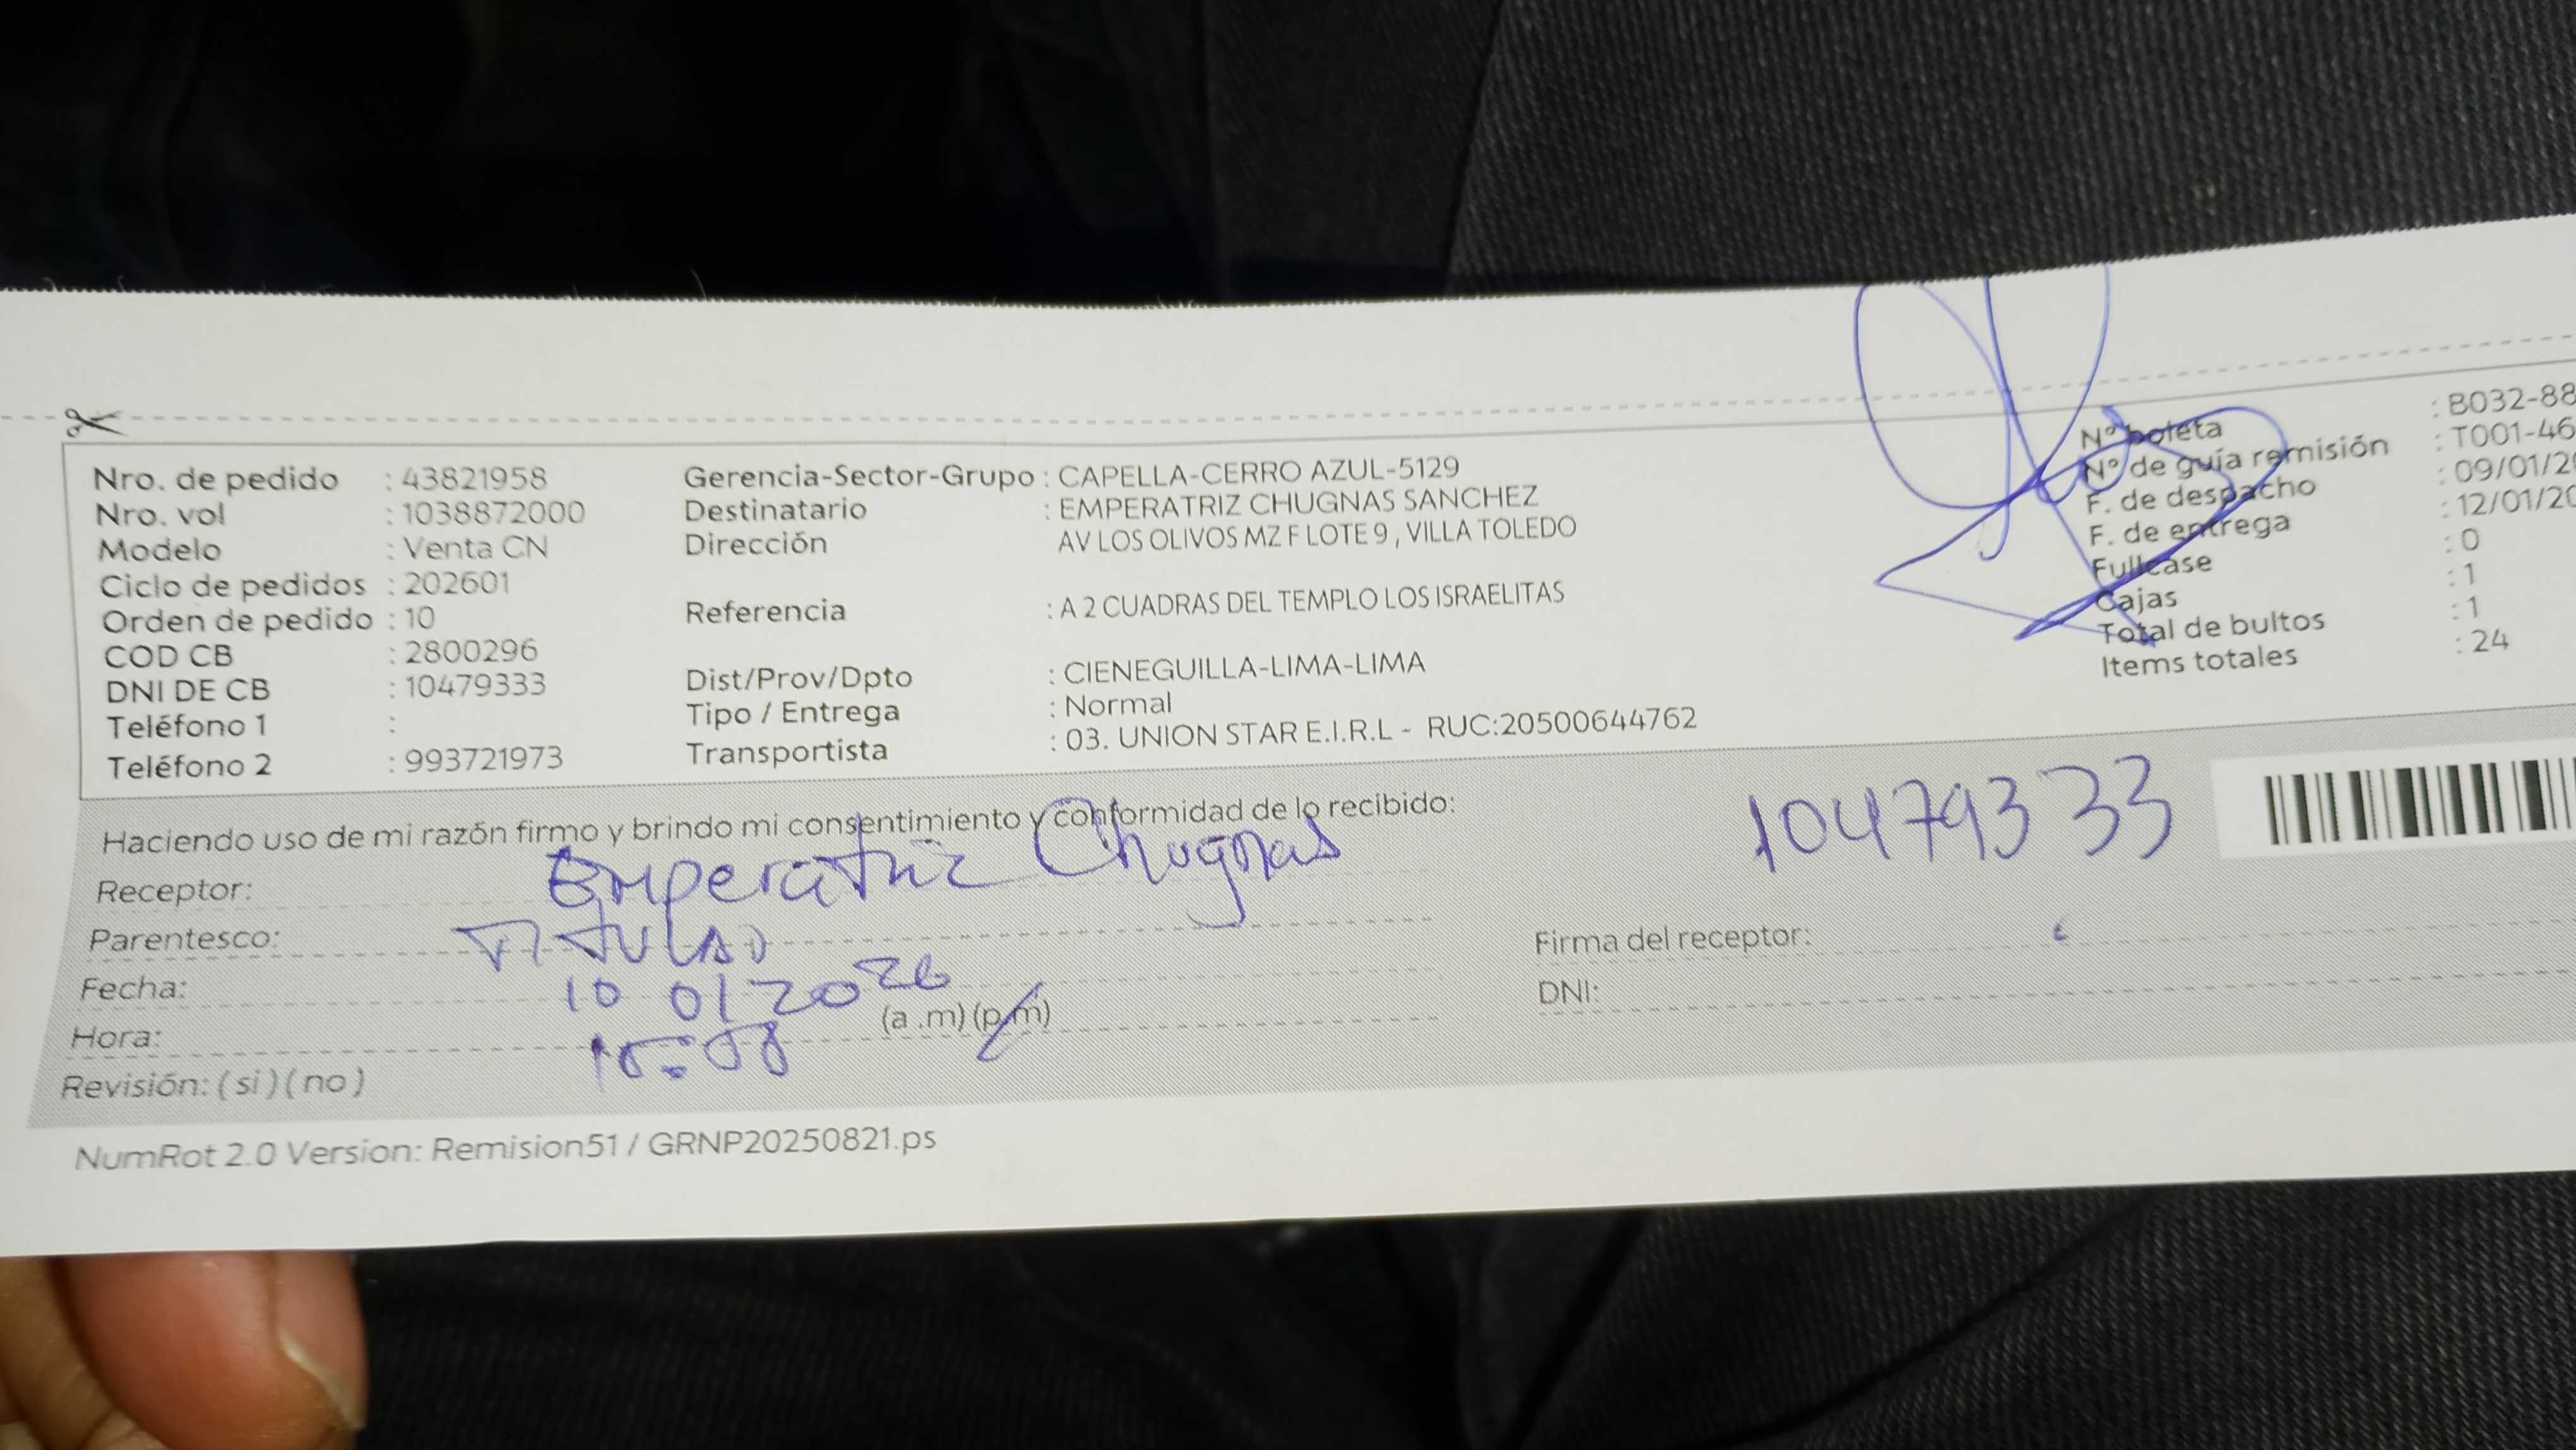 Nro. de pedido : 43821958
Nro. vol : 1038872000
Modelo : Venta CN
Ciclo de pedidos : 202601
Orden de pedido : 10
COD CB : 2800296
DNI DE CB : 10479333
Teléfono 1 :
Teléfono 2 : 993721973
Gerencia-Sector-Grupo : CAPELLA-CERRO AZUL-5129
Destinatario : EMPERATRIZ CHUGNAS SANCHEZ
Dirección AV LOS OLIVOS MZ F LOTE 9 , VILLA TOLEDO
Referencia : A 2 CUADRAS DEL TEMPLO LOS ISRAELITAS
Dist/Prov/Dpto : CIENEGUILLA-LIMA-LIMA
Tipo / Entrega : Normal
Transportista : 03. UNION STAR E.I.R.L - RUC:20500644762
N° boleta : B032-88
N° de guía remisión : T001-46
F. de despacho : 09/01/20
F. de entrega : 12/01/20
Fullcase : 0
Cajas : 1
Total de bultos : 1
Items totales : 24
Haciendo uso de mi razón firmo y brindo mi consentimiento y conformidad de lo recibido:
Receptor: Emperatriz Chugnas
Parentesco: Titular
Fecha: 10 01 2026
Hora: (a .m) (p.m)
Revisión: ( si ) ( no )
10479333
Firma del receptor:
DNI:
NumRot 2.0 Version: Remision51 / GRNP20250821.ps